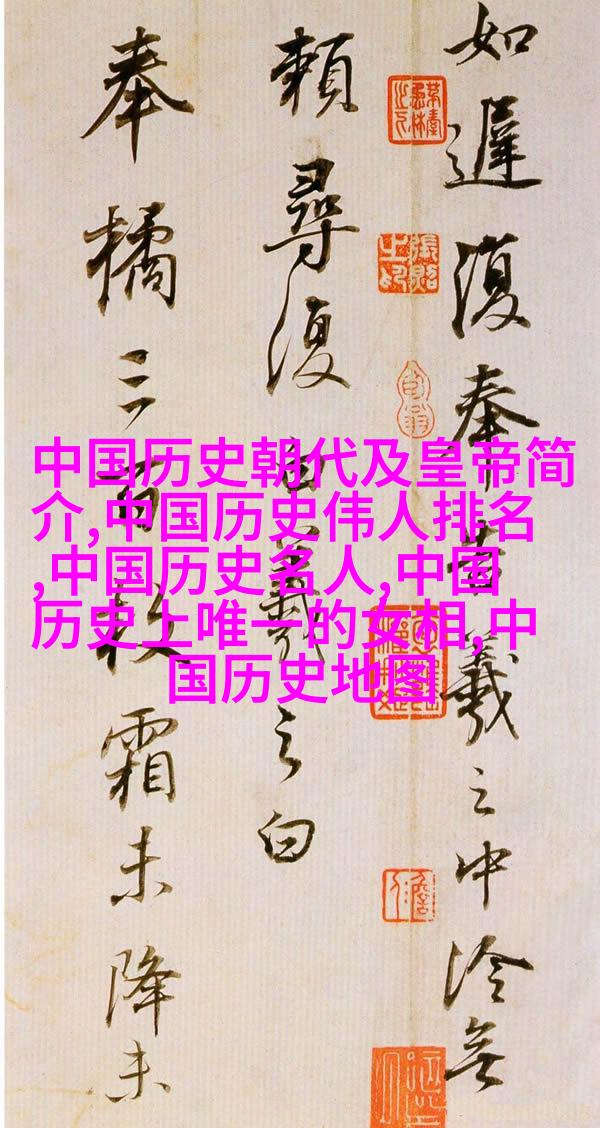 如遲復奉告羲之中冷無
賴尋復白羲之白
奉橘三百枚霜未降未
中国历史朝代及皇帝简
介,中国历史伟人排名
,中国历史名人,中国
历史上唯一的女相,中
国历史地图